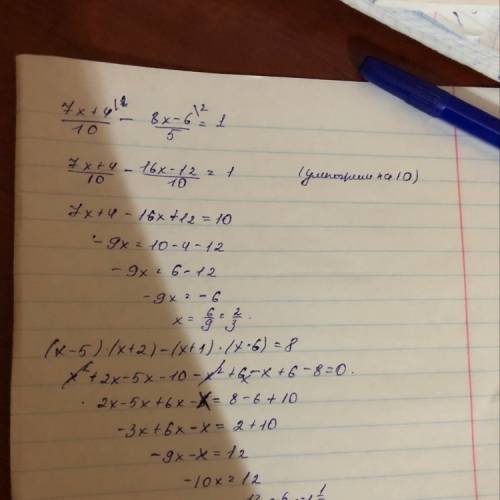 (7x+4)/10 \1 - (8x-6)/5 \2 = 1
(7x+4)/10 - (16x-12)/10 = 1 (умножим на 10)
7x+4-16x+12=10
-9x=10-4-12
-9x=6-12
-9x=-6
x=6/9=2/3.
(x-5)·(x+2)-(x+1)·(x-6)=8
x²+2x-5x-10-x²+6x-x+6-8=0.
2x-5x+6x-x=8-6+10
-3x+6x-x=2+10
-9x-x=12
-10x=12